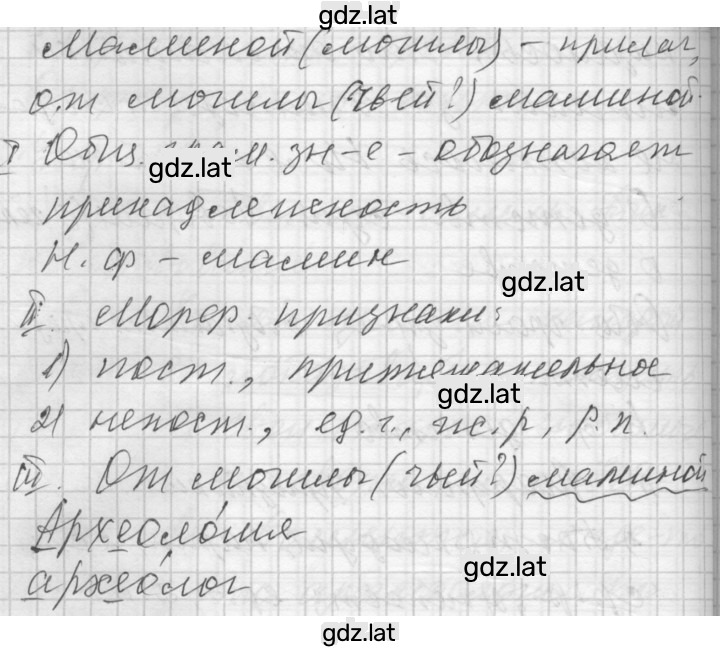 gdz.lat
Маминой (могилы) - прилаг,
от могилы (чьей?) маминой.
I Общ. зн-е - обозначает
gdz.lat
принадлежность
Н. ф - мамин
gdz.lat
II. Морф. признаки:
1) пост., притяжательное
gdz.lat
2) непост., ед. ч., ж. р, р. п.
III. От могилы (чьей?) маминой
Археоло́гия
архео́лог
gdz.lat
gdz.lat